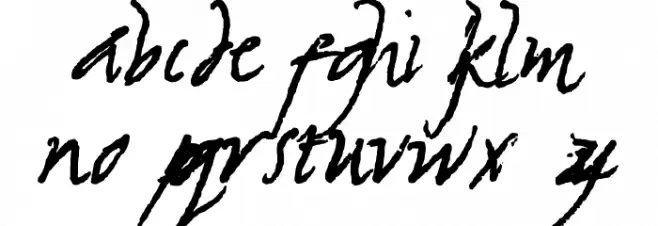 abcde fghi jklm
no pqrstuvwx yz